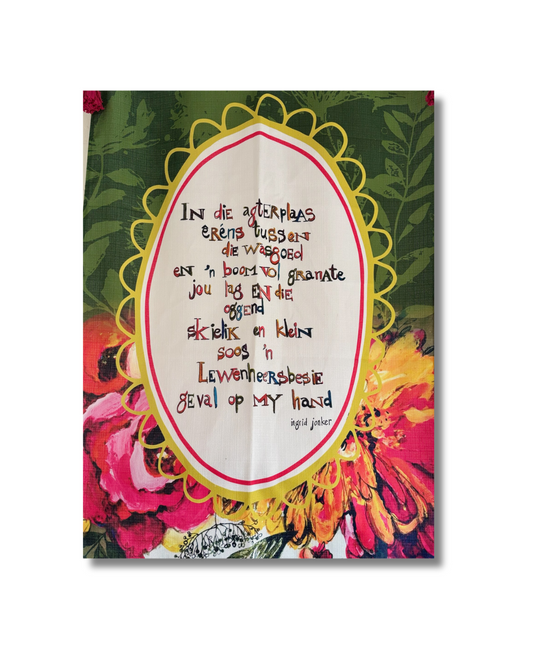 In die agterplaas
erêns tussen
die wasgoed
en 'n boom vol granate
jou lag en die
oggend
skielik en klein
soos 'n
Lewenheersbesie
geval op my hand
ingrid jonker